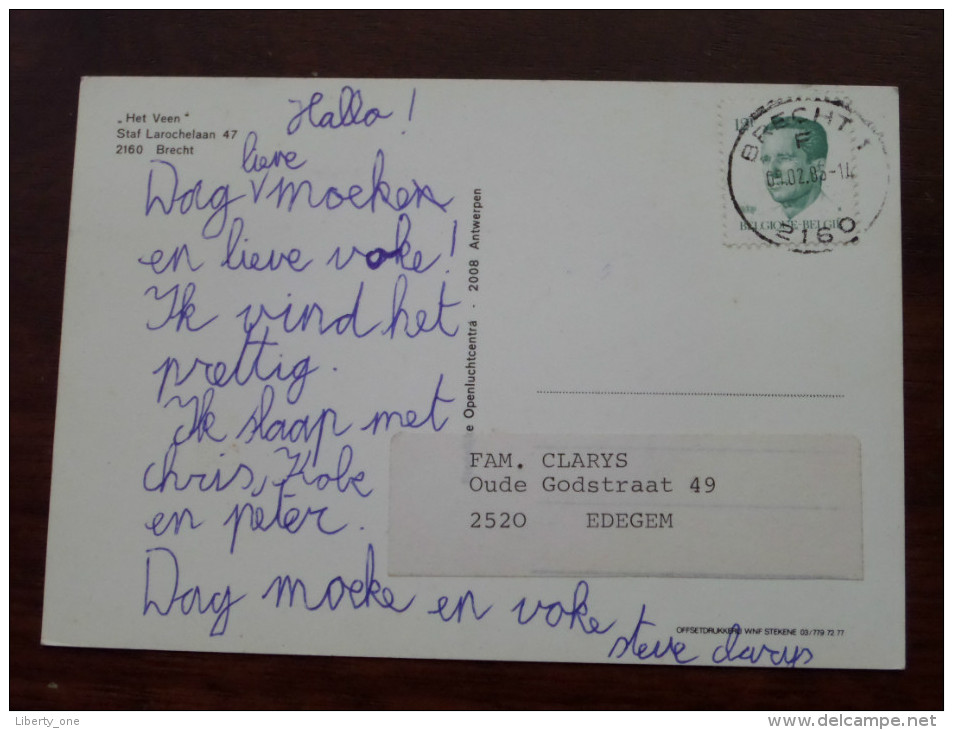 „Het Veen"
Staf Larochelaan 47
2160 Brecht
Hallo!
Dag lieve moeke
en lieve voke!
Ik vind het
prettig.
Ik slaap met
chris, Kobe
en peter.
Dag moeke en voke
steve clarys
e Openluchtcentra - 2008 Antwerpen
BRECHT 1
F
2160
BELGIQUE-BELGIË
FAM. CLARYS
Oude Godstraat 49
2520 EDEGEM
OFFSETDRUKKERIJ WNF STEKENE 03/779 72 77
Liberty_one
http://www.delcampe.net